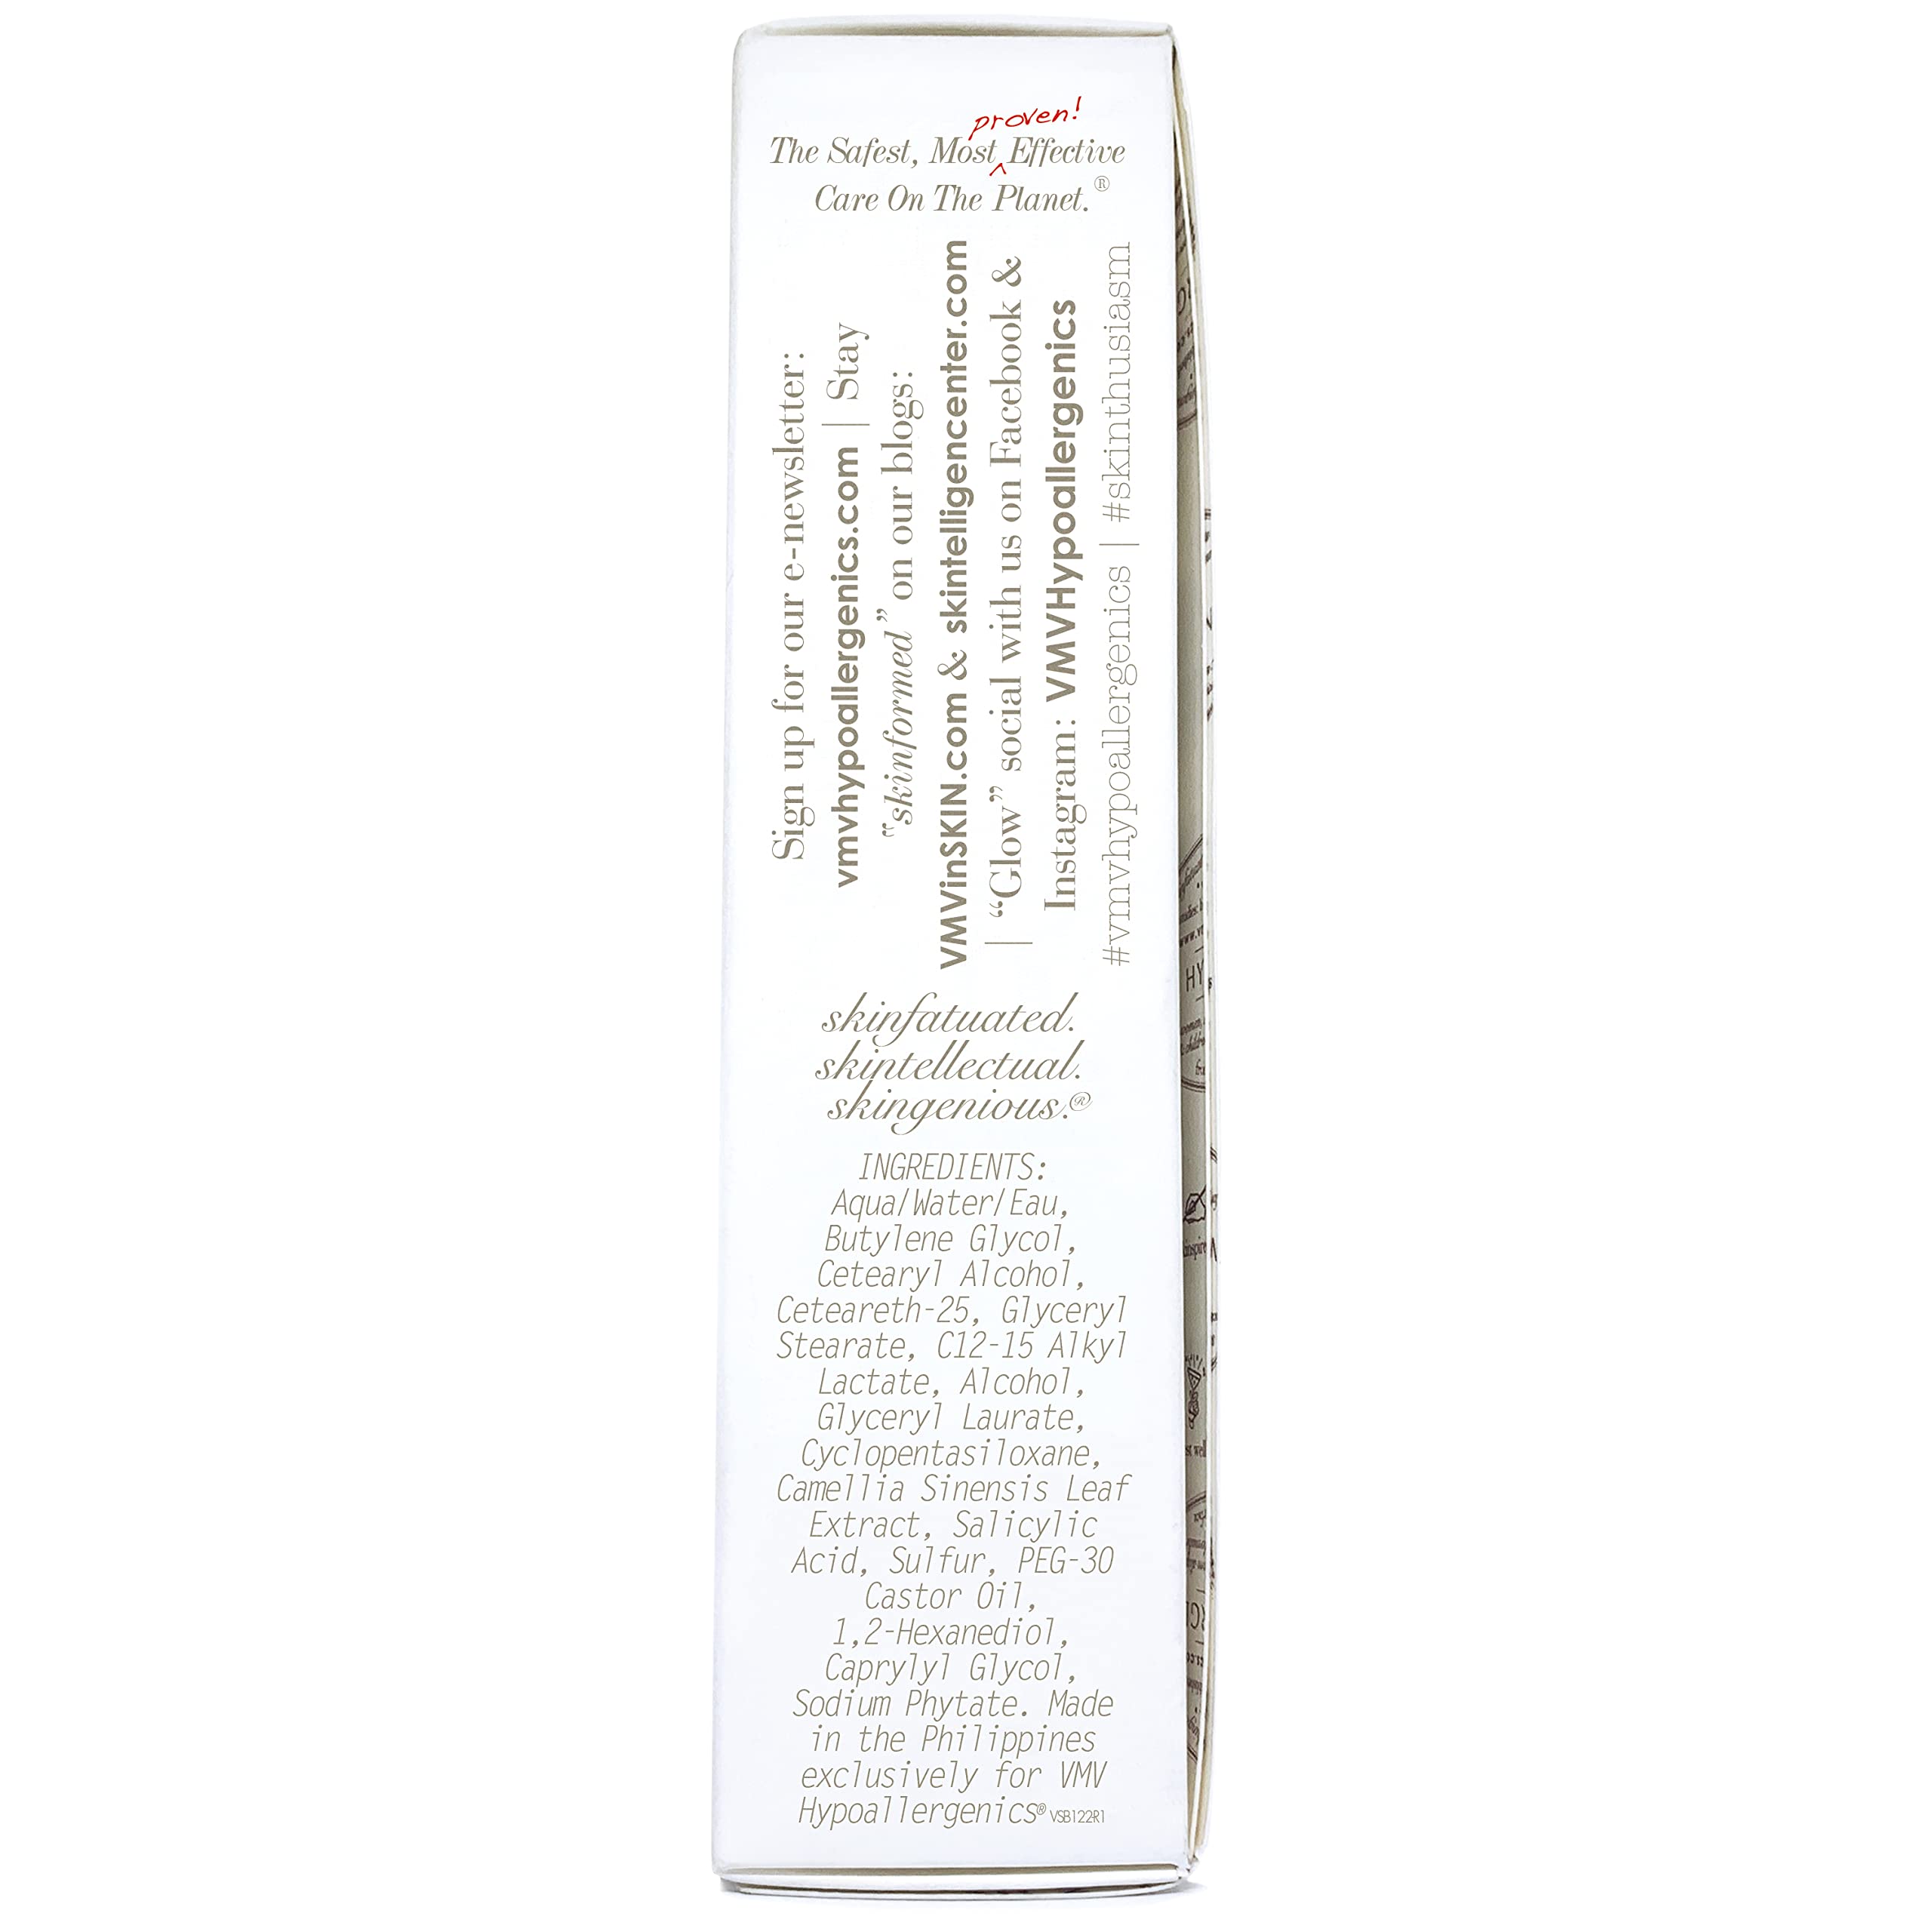 proven!
The Safest, Most ^ Effective
Care On The Planet.®
Sign up for our e-newsletter:
vmvhypoallergenics.com | Stay
“skinformed” on our blogs:
VMVinSKIN.com & skintelligencenter.com
| “Glow” social with us on Facebook &
Instagram: VMVHypoallergenics
#vmvhypoallergenics | #skinthusiasm
skinfatuated.
skintellectual.
skingenious.®
INGREDIENTS:
Aqua/Water/Eau,
Butylene Glycol,
Cetearyl Alcohol,
Ceteareth-25, Glyceryl
Stearate, C12-15 Alkyl
Lactate, Alcohol,
Glyceryl Laurate,
Cyclopentasiloxane,
Camellia Sinensis Leaf
Extract, Salicylic
Acid, Sulfur, PEG-30
Castor Oil,
1,2-Hexanediol,
Caprylyl Glycol,
Sodium Phytate. Made
in the Philippines
exclusively for VMV
Hypoallergenics® VSB122R1